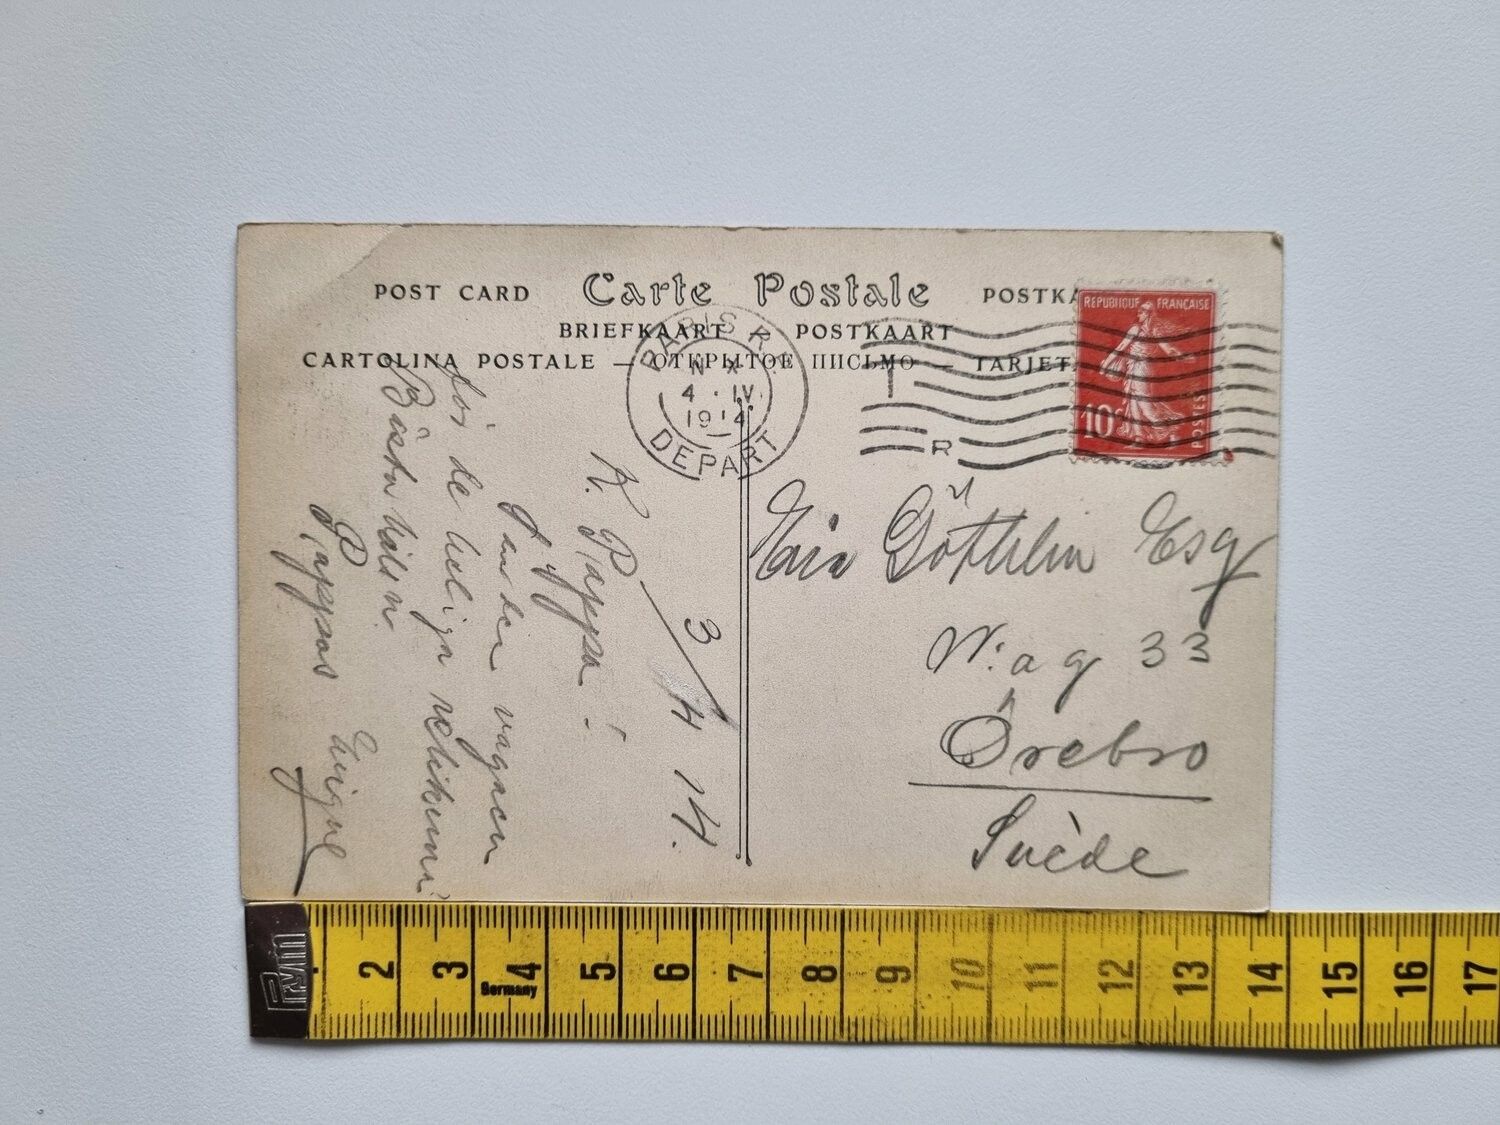 POST CARD Carte Postale POSTKA
BRIEFKAART — POSTKAART
CARTOLINA POSTALE — ОТКРЫТОЕ ПИСЬМО — TARJET
PARIS R.
N X
4 · IV
1914
DEPART
R
REPUBLIQUE FRANÇAISE
10c
POSTES
3/4 14.
K. Pappa!
Sänder vagnen
för de heliga relikerna
Bästa hälsn.
Pappas
Göthlin Esq
N:a g 33
Örebro
Suède
PRYM
Germany
2 3 4 5 6 7 8 9 10 11 12 13 14 15 16 17